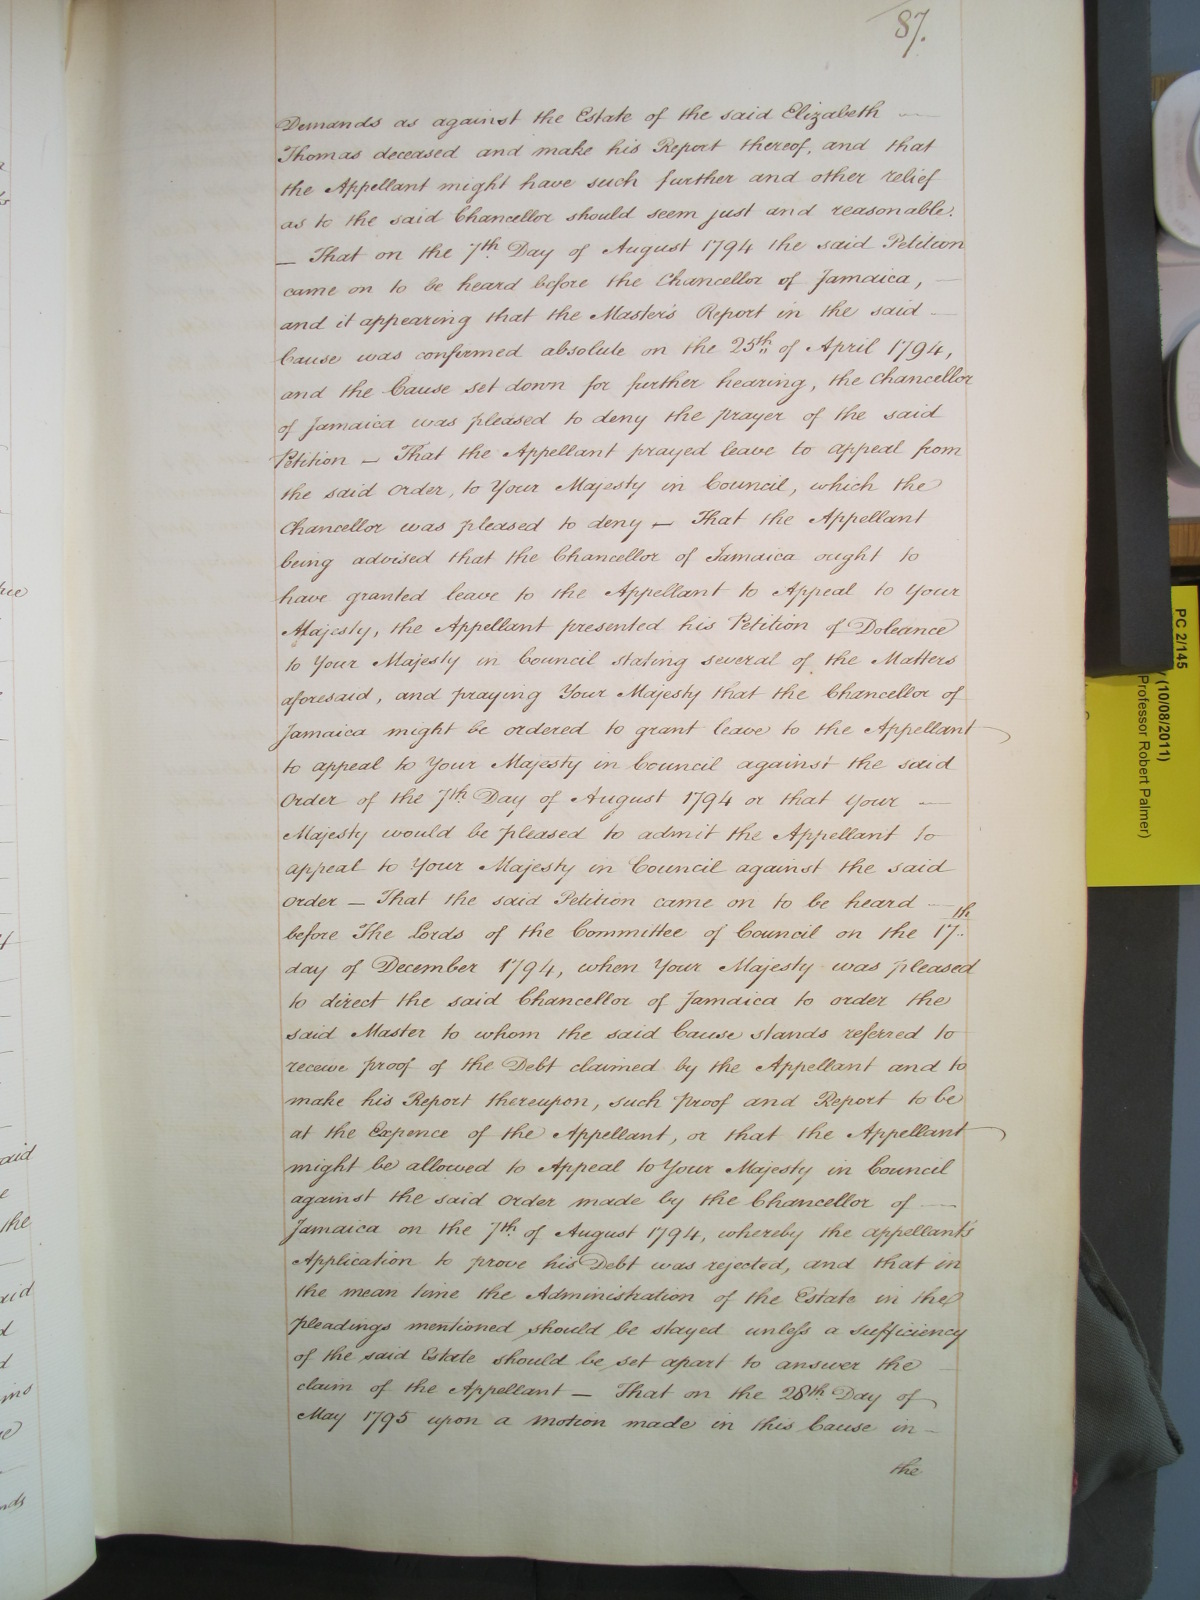 87.
Demands as against the Estate of the said Elizabeth
Thomas deceased and make his Report thereof, and that
the Appellant might have such further and other relief
as to the said Chancellor should seem just and reasonable.
— That on the 7th Day of August 1794 the said Petition
came on to be heard before the Chancellor of Jamaica, —
and it appearing that the Master's Report in the said —
Cause was confirmed absolute on the 25th of April 1794,
and the Cause set down for further hearing, the Chancellor
of Jamaica was pleased to deny the prayer of the said
Petition — That the Appellant prayed leave to appeal from
the said Order, to Your Majesty in Council, which the
Chancellor was pleased to deny — That the Appellant
being advised that the Chancellor of Jamaica ought to
have granted leave to the Appellant to Appeal to Your
Majesty, the Appellant presented his Petition of Doleance
to Your Majesty in Council stating several of the Matters
aforesaid, and praying Your Majesty that the Chancellor of
Jamaica might be ordered to grant leave to the Appellant
to appeal to Your Majesty in Council against the said
Order of the 7th Day of August 1794 or that Your —
Majesty would be pleased to admit the Appellant to
appeal to Your Majesty in Council against the said
Order — That the said Petition came on to be heard —
before The Lords of the Committee of Council on the 17th
day of December 1794, when Your Majesty was pleased
to direct the said Chancellor of Jamaica to order the
said Master to whom the said Cause stands referred to
receive proof of the Debt claimed by the Appellant and to
make his Report thereupon, such proof and Report to be
at the Expence of the Appellant, or that the Appellant
might be allowed to Appeal to Your Majesty in Council
against the said Order made by the Chancellor of —
Jamaica on the 7th of August 1794, whereby the appellant's
Application to prove his Debt was rejected, and that in
the mean time the Administration of the Estate in the
pleadings mentioned should be stayed unless a sufficiency
of the said Estate should be set apart to answer the —
claim of the Appellant — That on the 28th Day of
May 1795 upon a motion made in this Cause in —
the
PC 2/145
(10/08/2011)
Professor Robert Palmer)